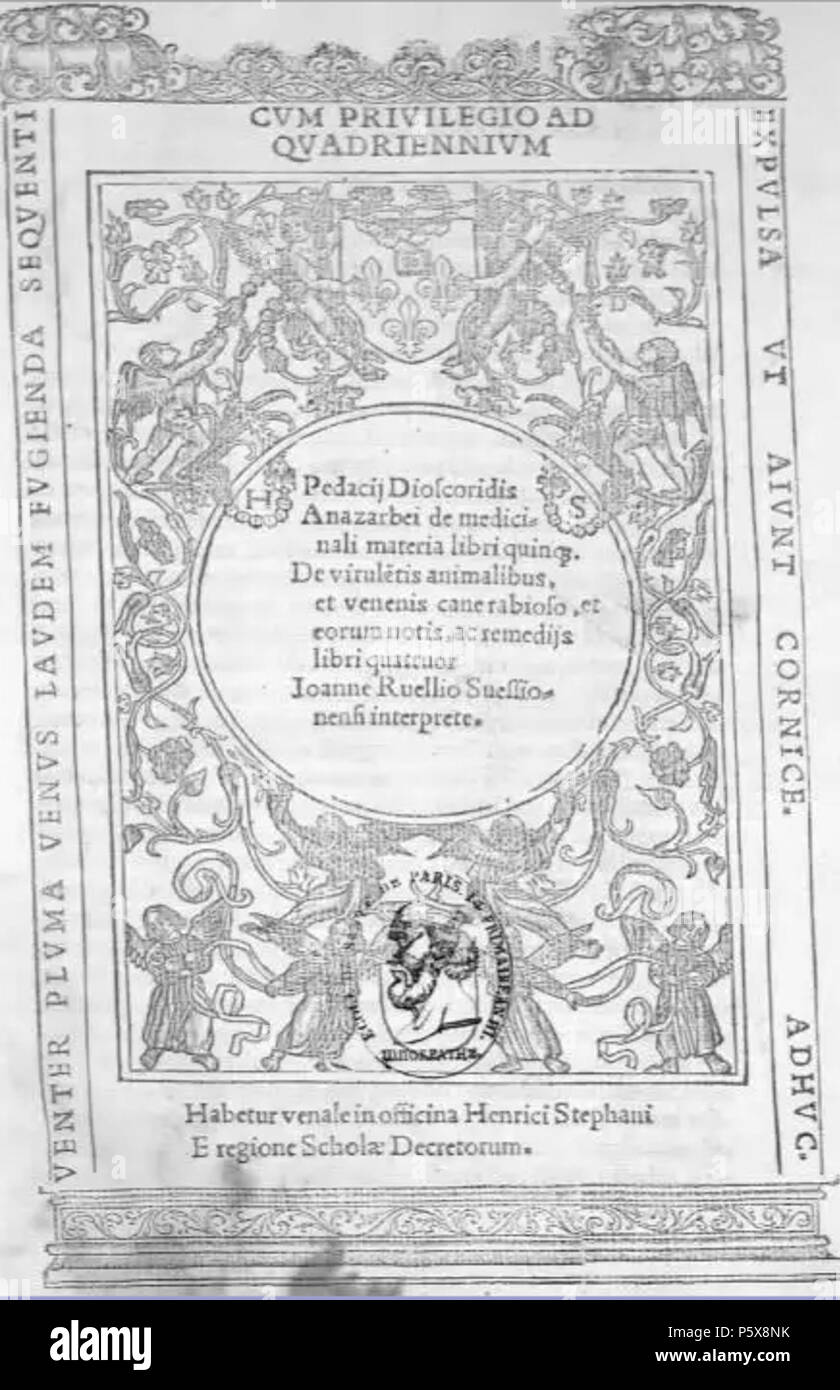 CVM PRIVILEGIO AD
QVADRIENNIVM
VENTER PLVMA VENVS LAVDEM FVGIENDA SEQVENTI
EXPVLSA VT AIVNT CORNICE.
ADHVC.
H
S
Pedacij Dioscoridis
Anazarbei de medici-
nali materia libri quinq.
De virulētis animalibus,
et venenis cane rabioso, et
eorum notis, ac remedijs
libri quatuor
Ioanne Ruellio Suessio-
nensi interprete.
DE PARIS
Habetur venale in officina Henrici Stephani
E regione Scholæ Decretorum.
alamy
Image ID: P5X8NK
www.alamy.com